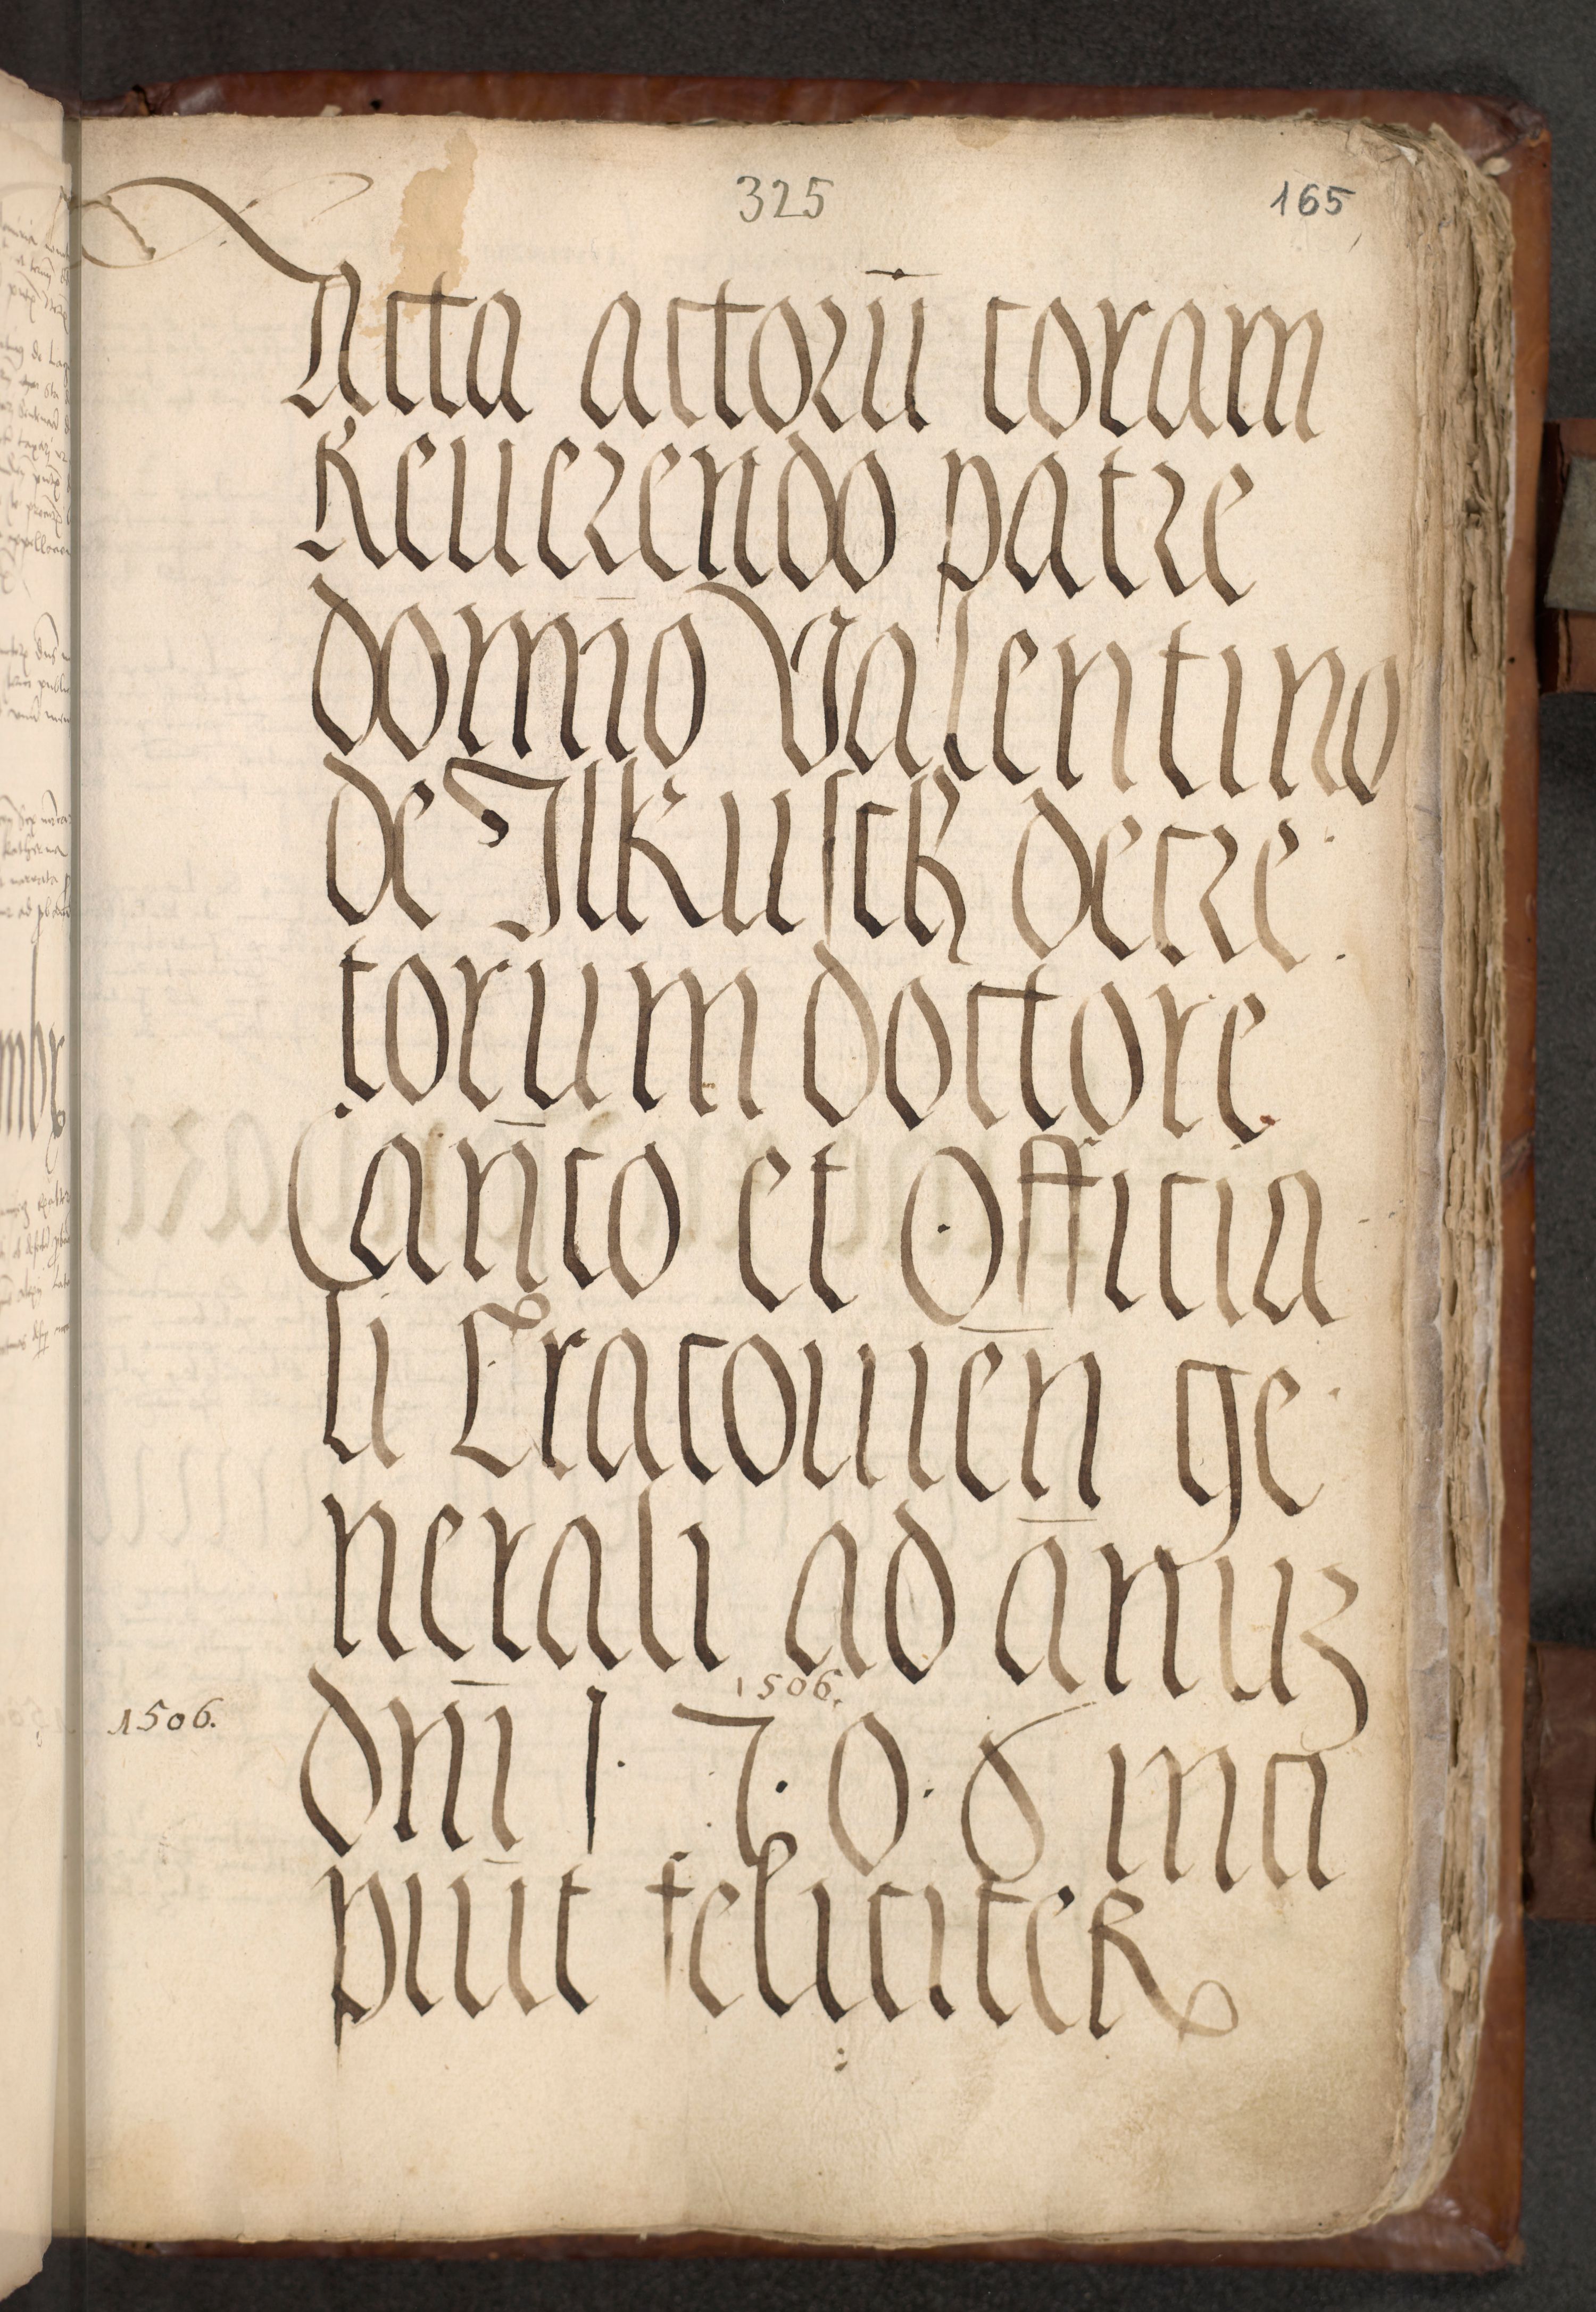 325
165
Acta actorū coram
Reuerendo patre
domīo Valentino
de Ilkusch decre
torum doctore
Can̄co et Officia
li Cracouien̄ ge
nerali ad ānuʒ
1506.
1506.
dnī 1 . 5 . 0 . 6 inci
piūt feliciter